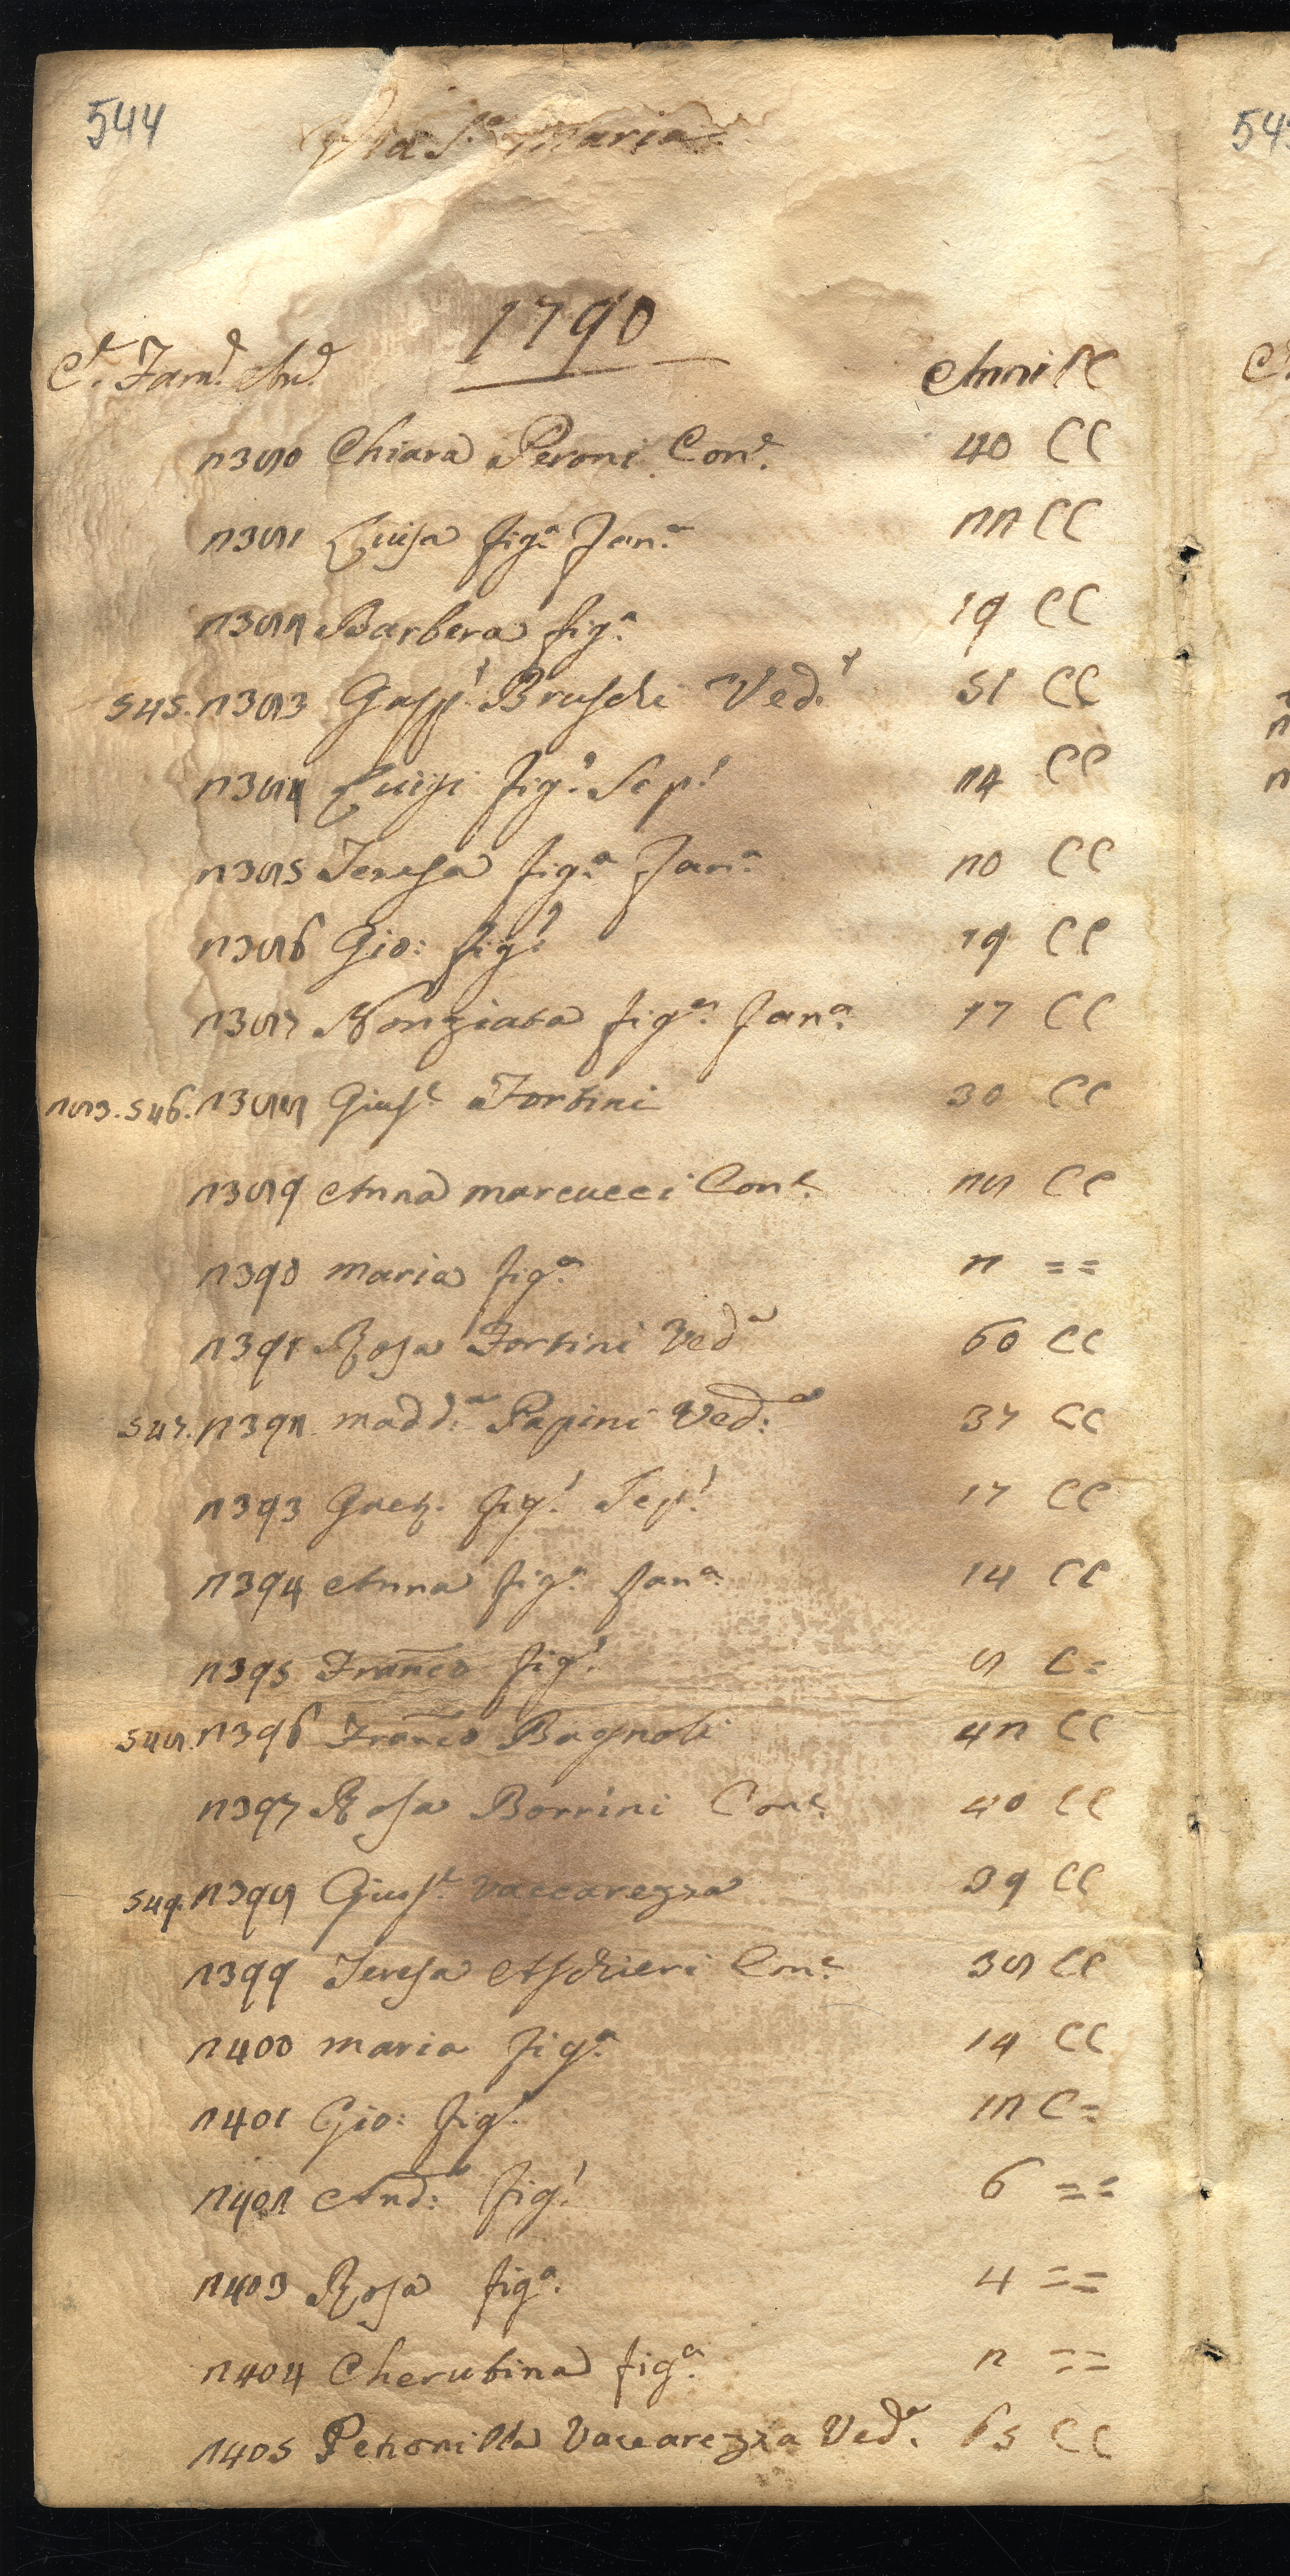 544
Via S.a Maria
1790
C.e Fam.e An.e Anni CC
2380 Chiara Peroni Con.e 40 CC
2381 Luisa fig.a Fan.a 22 CC
2382 Barbera fig.a 19 CC
545. 2383 Gasp.e Bruschi Ved.o 51 CC
2384 Luigi fig.o Scp.o 24 CC
2385 Teresa fig.a Fan.a 20 CC
2386 Gio: fig.o 19 CC
2387 Nonziata fig.a Fan.a 17 CC
283. 546. 2388 Gius.e Fortini 30 CC
2389 Anna marcucci Con.e 28 CC
2390 maria fig.a 2 ==
2391 Rosa Fortini Ved.a 60 CC
547. 2392 madd.a Papini Ved.a 37 CC
2393 Gaet. fig.o Scp.o 17 CC
2394 Anna fig.a Fan.a 14 CC
2395 Franco fig.o 8 C=
548. 2396 Franco Bagnoli 42 CC
2397 Rosa Borrini Con.e 40 CC
549. 2398 Gius.e Vaccarezza 39 CC
2399 Teresa Aschieri Con.e 38 CC
2400 maria fig.a 14 CC
2401 Gio: fig.o 12 C=
2402 And.a fig.o 6 ==
2403 Rosa fig.a 4 ==
2404 Cherubina fig.a 2 ==
2405 Petronilla Vaccarezza Ved.a 65 CC